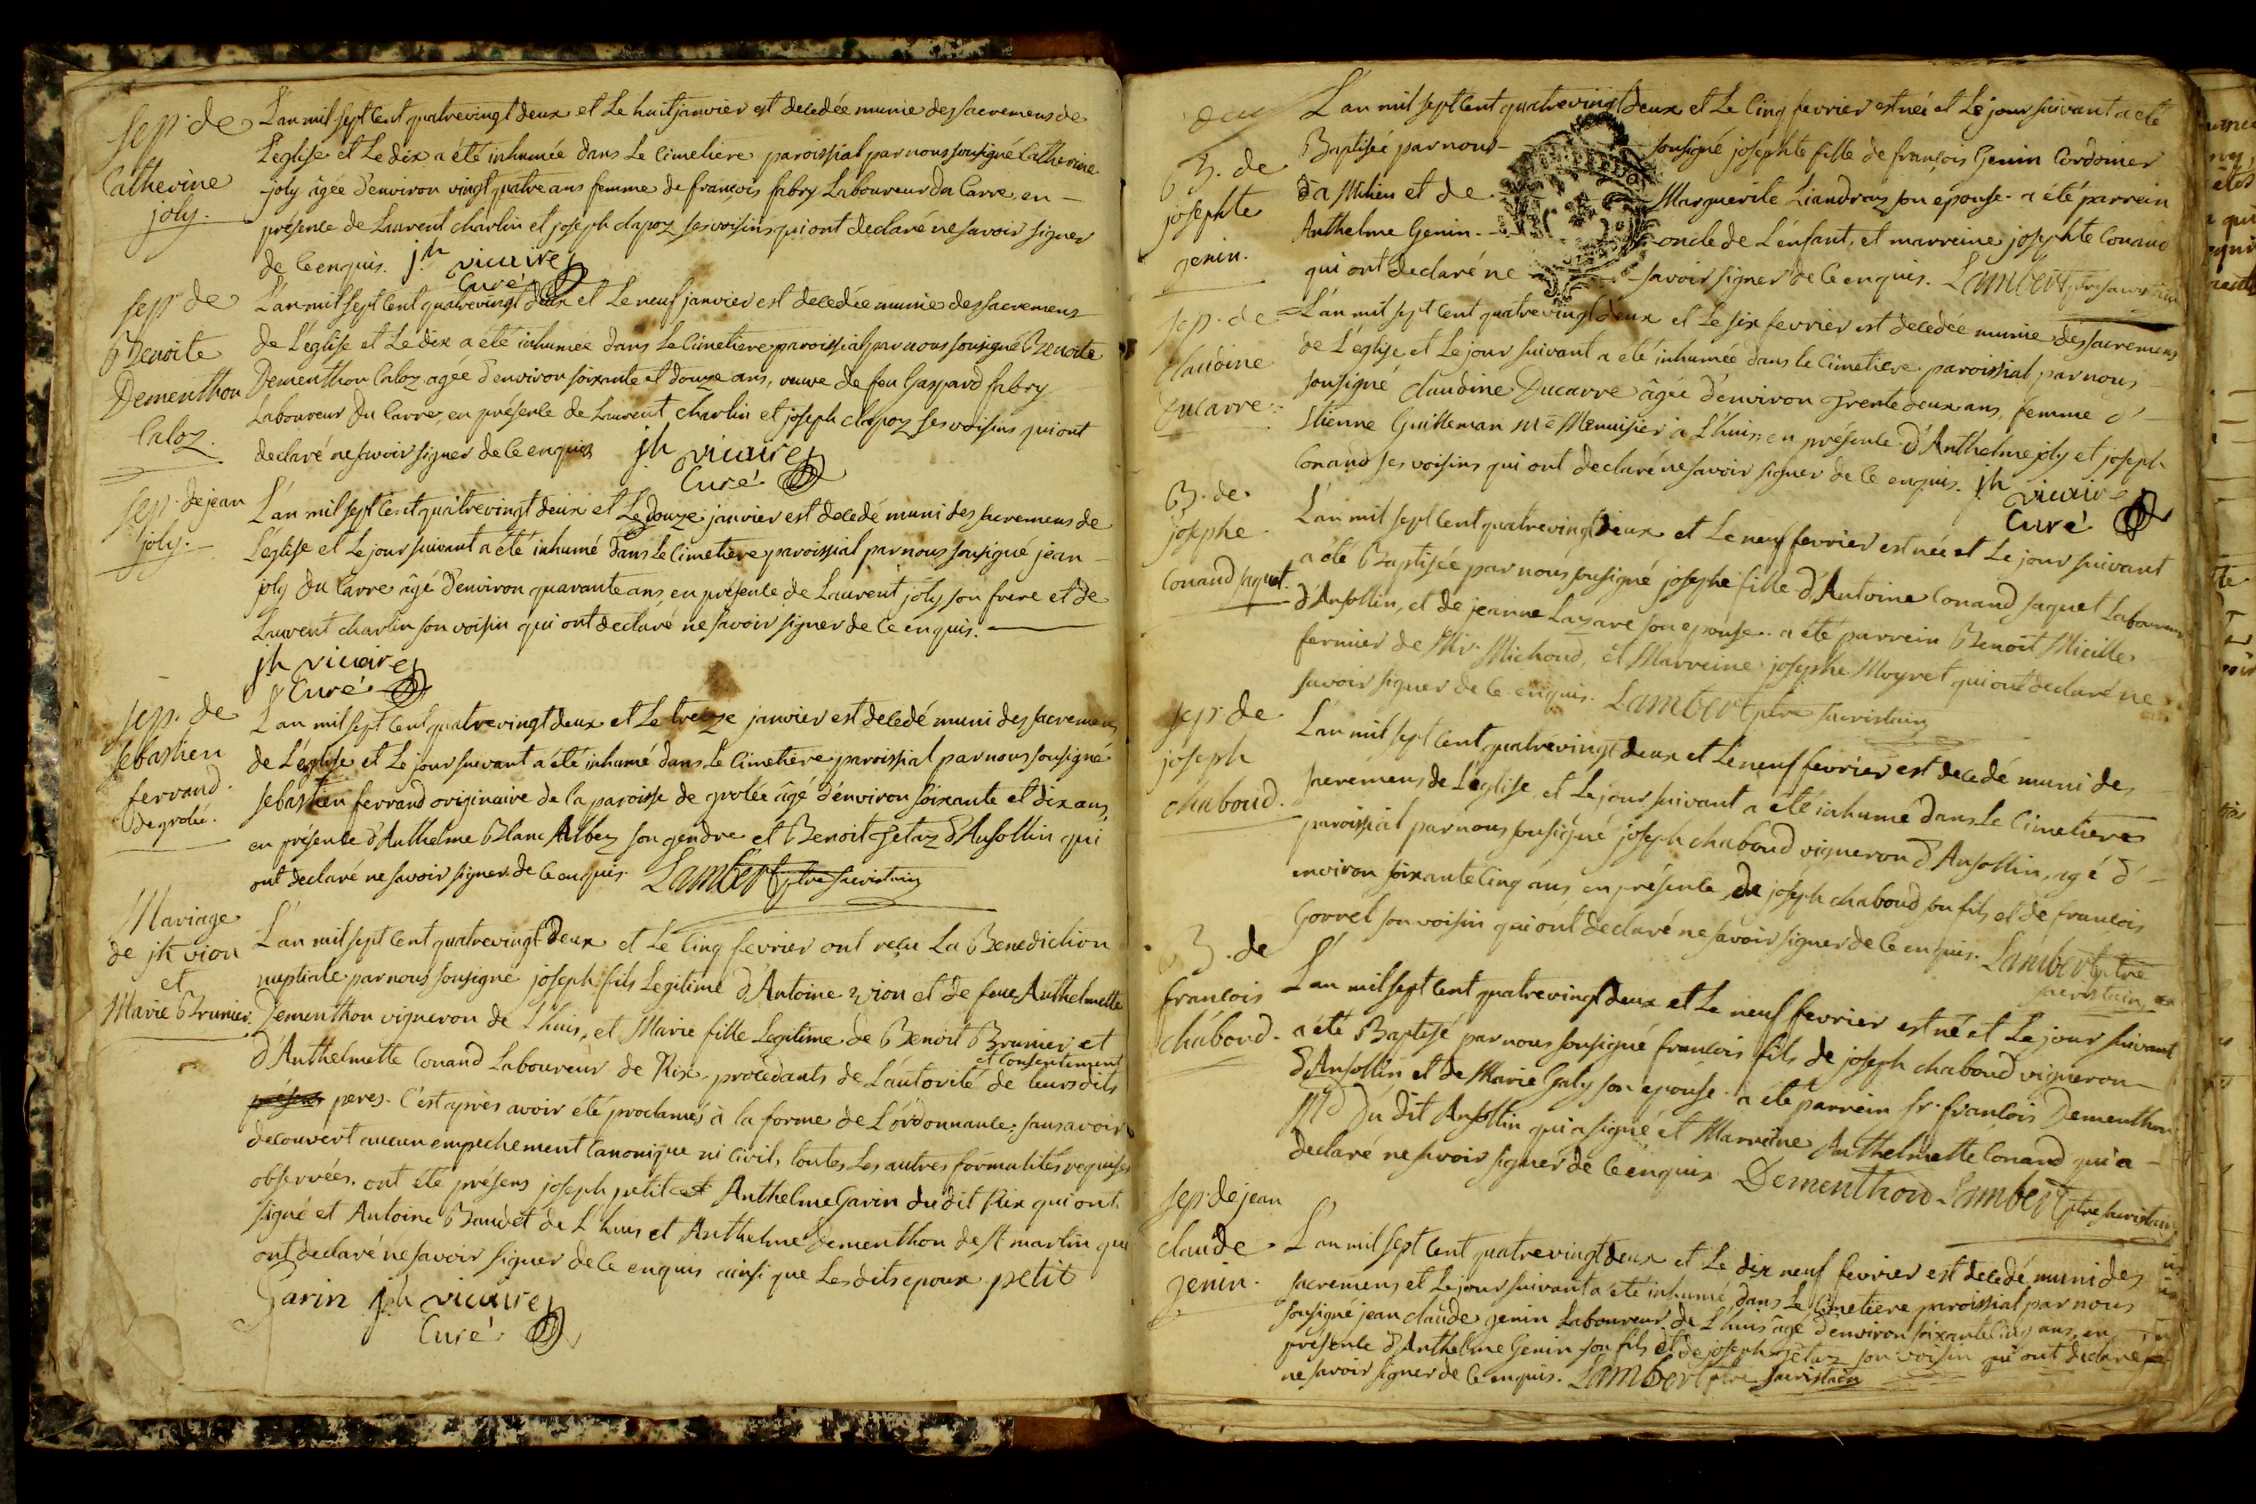 Sep. de
Catherine
joly.
L'an mil sept cent quatrevingt deux et le huit janvier est decedée munie des sacremens de
L'eglise et Le dix a été inhumée dans Le Cimetiere paroissial par nous sousigné Catherine
joly âgée d'environ vingt quatre ans femme de françois fabry Laboureur du Carre, en
présence de Laurent charlin et joseph clapoz ses voisins qui ont declaré ne savoir signer
de ce enquis. jh vicaire
Curé
sep. de
Benoite
Dementhon
Caloz.
L'an mil sept cent quatrevingt deux et Le neuf janvier est decedée munie des sacremens
de L'eglise et Le dix a été inhumée dans Le Cimetiere paroissial par nous sousigné Benoite
Dementhon Caloz agée d'environ soixante et douze ans, veuve de feu Gaspard fabry
Laboureur du Carre, en présence de Laurent charlin et joseph clapoz ses voisins qui ont
declaré ne savoir signer de ce enquis jh vicaire
Curé
sep. de jean
joly.
L'an mil sept cent quatrevingt deux et Le douze janvier est decedé muni des sacremens de
L'eglise et Le jour suivant a été inhumé dans Le Cimetiere paroissial par nous sousigné jean
joly du Carre âgé d'environ quarante ans, en présence de Laurent joly son frere et de
Laurent charlin son voisin qui ont declaré ne savoir signer de ce enquis.
jh vicaire
Curé
sep. de
sebastien
ferrand
de grolée.
L'an mil sept cent quatrevingt deux et Le treize janvier est decedé muni des sacremens
de L'église et Le jour suivant a été inhumé dans Le Cimetiere paroissial par nous sousigné
sebastien ferrand originaire de la paroisse de grolée âgé d'environ soixante et dix ans,
en présence d'Anthelme Blanc Albez son gendre et Benoit Jetaz d'Ansollin qui
ont declaré ne savoir signer de ce enquis. Lambert ptre sacristain
Mariage
de jh vion
et
Marie Brunier.
L'an mil sept cent quatrevingt Deux et Le Cinq fevrier ont reçu La Benediction
nuptiale par nous sousigné joseph fils Legitime d'Antoine vion et de feue Anthelmette
Dementhon vigneron de L'huis, et Marie fille Legitime de Benoit Brunier et
d'Anthelmette Conand Laboureur de Rix, procedants de L'autorité de leurs dits
et consentement
peres. C'est après avoir été proclamés à la forme de L'ordonnance, sans avoir
decouvert aucun empechement Canonique ni Civil, toutes Les autres formalités requises
observées. ont été présens joseph petit et Anthelme Garin du dit Rix qui ont
signé et Antoine Baudet de L'huis et Anthelme Dementhon de st martin qui
ont declaré ne savoir signer de ce enquis ainsi que Les dits epoux. petit
Garin jph vicaire
Curé
B. de
josephte
genin.
L'an mil sept cent quatrevingt deux et Le Cinq fevrier est née et Le jour suivant a été
Baptisée par nous sousigné josephte fille de françois Genin Cordonier
d'a Milieu et de Marguerite Liandraz son épouse. a été parrein
Anthelme Genin oncle de L'enfant, et marreine josephte Conand
qui ont declaré ne savoir signer de ce enquis. Lambert ptre sacristain
sep. de
claudine
Ducarre.
L'an mil sept cent quatrevingt deux et Le six fevrier est decedée munie des sacremens
de L'église et Le jour suivant a été inhumée dans le Cimetiere paroissial par nous
sousigné claudine Ducarre âgée d'environ Trente deux ans, femme d'
Etienne Guilleman Me Menuisier a L'huis, en présence d'Anthelme joly et joseph
Conand ses voisins qui ont declaré ne savoir signer de ce enquis. jh vicaire
Curé
B. de
josephe
Conand Jaquet.
L'an mil sept cent quatrevingt deux et Le neuf fevrier est née et Le jour suivant
a été Baptisée par nous sousigné josephe fille d'Antoine Conand Jaquet Laboureur
d'Ansollin, et de jeanne Lazare son epouse. a été parrein Benoit Micille
fermier de Mr. Michoud, et Marreine josephe Moyret qui ont declaré ne
savoir signer de ce enquis. Lambert ptre sacristain
sep. de
joseph
chaboud.
L'an mil sept cent quatrevingt deux et Le neuf fevrier est decedé muni des
sacremens de L'église et Le jour suivant a été inhumé dans Le Cimetiere
paroissial par nous sousigné joseph chaboud vigneron d'Ansollin, agé d'
environ soixante Cinq ans en présence de joseph chaboud son fils et de francois
Gorret son voisin qui ont declaré ne savoir signer de ce enquis. Lambert ptre
sacristain
B. de
francois
chaboud.
L'an mil sept cent quatrevingt deux et Le neuf fevrier est né et Le jour suivant
a été Baptisé par nous sousigné francois fils de joseph chaboud vigneron
d'Ansollin et de Marie Galy son epouse. a été parrein sr. francois Dementhon
Md Du dit Ansollin qui a signé et Marreine Anthelmette Conand qui a
declaré ne savoir signer de ce enquis Dementhon Lambert ptre sacristain
sep. de jean
claude
genin.
L'an mil sept cent quatrevingt deux et Le dix neuf fevrier est decedé muni des
sacremens et Le jour suivant a été inhumé dans Le Cimetiere paroissial par nous
sousigné jean claude genin Laboureur de L'huis âgé d'environ soixante Cinq ans, en
présence d'Anthelme Genin son fils et de joseph Jetaz son voisin qui ont declaré
ne savoir signer de ce enquis. Lambert ptre sacristain